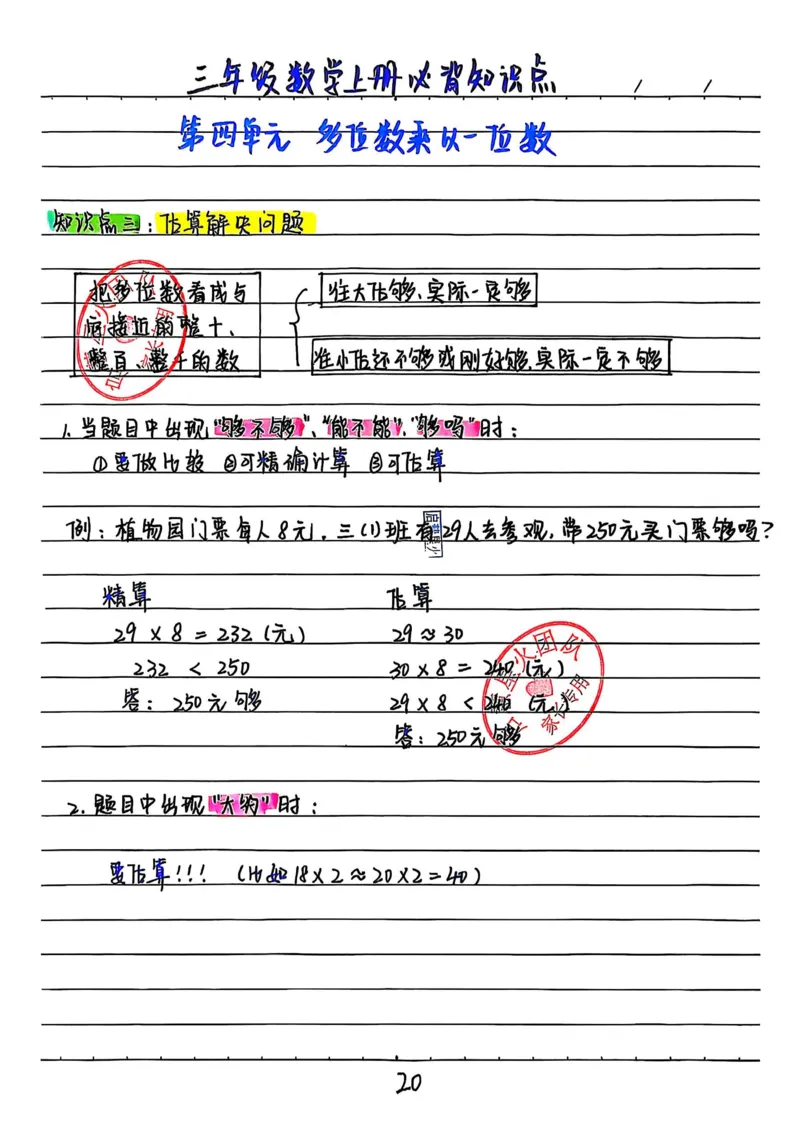 三年级数学上册必背知识点 / /
第四单元 多位数乘以一位数
知识点三:估算解决问题
把多位数看成与
它接近的整十、
整百、整千的数
往大估够、实际一定够
往小估还不够或刚好够,实际一定不够
1.当题目中出现"够不够"、"能不能"、"够吗"时:
①要做比较 ②可精确计算 ③可估算
例:植物园门票每人8元,三(1)班有29人去参观,带250元买门票够吗?
精算
29 × 8 = 232(元)
232 < 250
答:250元够
估算
29 ≈ 30
30 × 8 = 240(元)
29 × 8 < 240(元)
答:250元够
星火团队
家长专用
2.题目中出现"大约"时:
要估算!!!(比如18×2≈20×2=40)
20